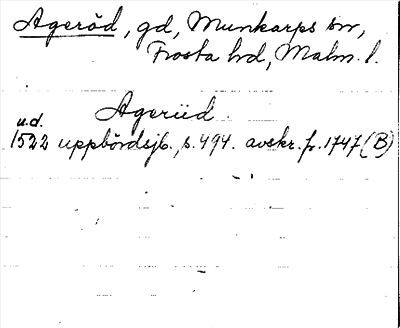 Ageröd, gd, Munkarps sn,
Frosta hd, Malm. l.
Agerüd
u.d.
1522 uppbördsjb. s. 494. avskr. fr. 1747 (B)